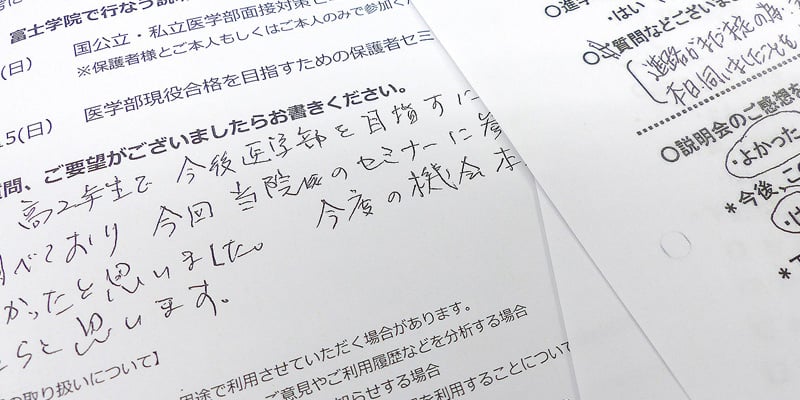 富士学院で行なう説
(日) 国公立・私立医学部面接対策セ
※保護者様とご本人もしくはご本人のみで参加く
15(日) 医学部現役合格を目指すための保護者セミ
質問、ご要望がございましたらお書きください。
高2年生で 今後医学部を目指すに
べており 今回 当院 のセミナーに参
かったと思いました。 今度の機会
らと思います。
の取り扱いについて】
用途で利用させていただく場合があります。
ご意見やご利用履歴などを分析する場合
知らせする場合
を利用することについて
○進学
・はい
○質問などございまし
進路が未定の為、
本日伺いましたことを
○説明会のご感想を
・よかった
*今後、この
・は
*